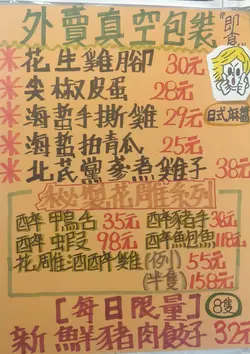 外賣真空包裝
即食
花生雞腳 30元
尖椒皮蛋 28元
日式麻醬
海哲手撕雞 29元
海哲拍青瓜 25元
北芪黨參煮雞子 38元
秘製花雕系列
醉鴨舌 35元
醉豬手 38元
醉蝦段 98元
醉魚 118元
花雕酒醉雞(例) 55元
(半隻) 158元
[每日限量]
8隻
新鮮豬肉餃子 32元